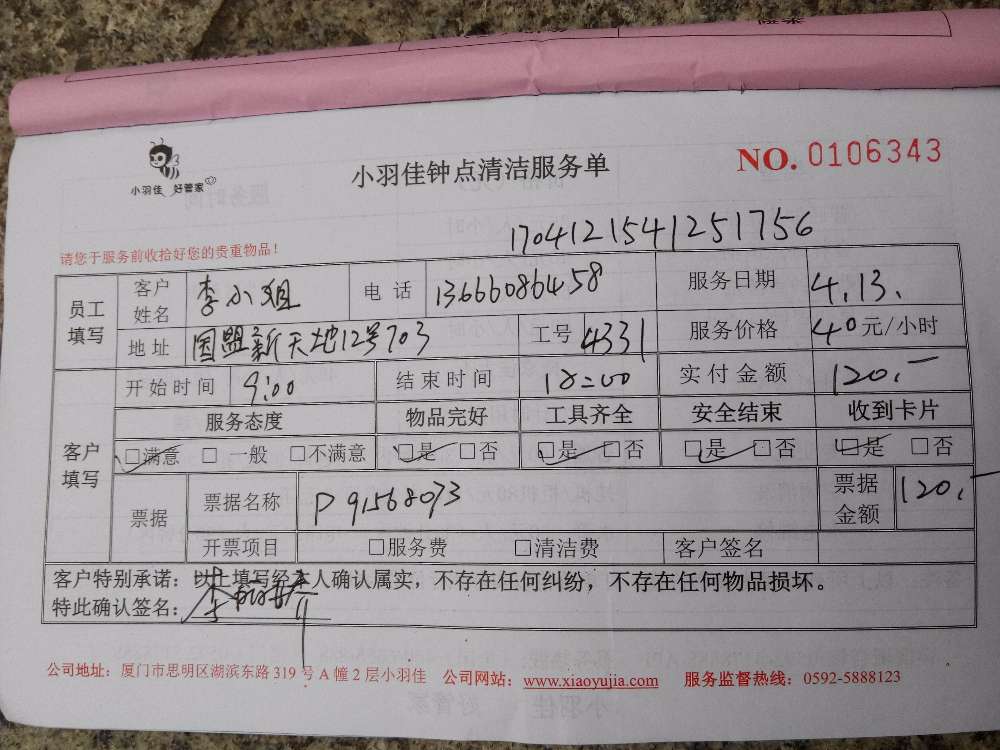 小羽佳 好管家
小羽佳钟点清洁服务单
NO. 0106343
1704121541251756
请您于服务前收拾好您的贵重物品！
员工填写 客户姓名 李小姐 电话 13666086458 服务日期 4.13.
地址 国盟新天地12号703 工号 4331 服务价格 40元/小时
客户填写 开始时间 9:00 结束时间 12:00 实付金额 120.-
服务态度 物品完好 工具齐全 安全结束 收到卡片
□满意 □一般 □不满意 □是 □否 □是 □否 □是 □否 □是 □否
票据 票据名称 P91568073 票据金额 120.-
开票项目 □服务费 □清洁费 客户签名
客户特别承诺：以上填写经本人确认属实，不存在任何纠纷，不存在任何物品损坏。
特此确认签名：李
公司地址：厦门市思明区湖滨东路 319 号 A 幢 2 层小羽佳 公司网站：www.xiaoyujia.com 服务监督热线：0592-5888123